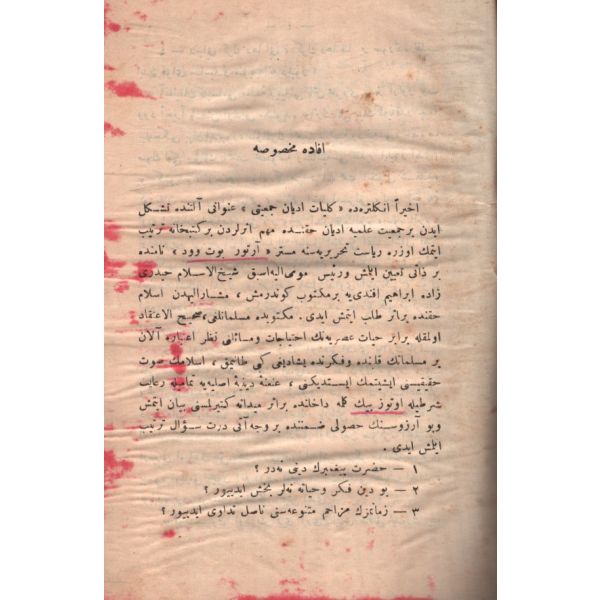 افاده مخصوصه
اخیراً انكلتره‌ده «كلیات ادیان جمعیتی» عنوانی آلتنده تشكل
ایدن بر جمعیت علمیه ادیان حقنده مهم اثرلردن بر كتبخانه ترتیب
ایتمك اوزره ریاست تحریریه‌سنه مستر «آرتور بوت وود» نامنده
بر ذاتی تعیین ایتمش و رئیس مومی الیه اسبق شیخ الاسلام حیدری
زاده ابراهیم افندی‌یه بر مكتوب كوندرمش ، مشار الیهدن اسلام
حقنده بر اثر طلب ایتمش ایدی . مكتوبده مسلمانلغی ، صحیح الاعتقاد
اولمقله برابر حیات عصریه‌نك احتیاجات و مسائلنی نظر اعتباره آلان
بر مسلمانك قلبنده و فكرنده یشادیغی كبی طانیمق ، اسلامك صوت
حقیقیسنی ایشیتمك ایستدیكنی ، عنعنهٔ دینیهٔ اصلیه‌یه تمامیله رعایت
شرطیله اوتوز بیك كله داخلنده بر اثر میدانه كتیرلمسنی بیان ایتمش
و بو آرزوسنك حصولی ضمننده بر وجه آتی درت سؤال ترتیب
ایتمش ایدی .
١ — حضرت پیغمبرك دینی نه‌در ؟
٢ — بو دین فكر و حیاته نه‌لر بخش ایدییور ؟
٣ — زمانمزك مزاحم متنوعه‌سنی ناصل تداوی ایدییور ؟